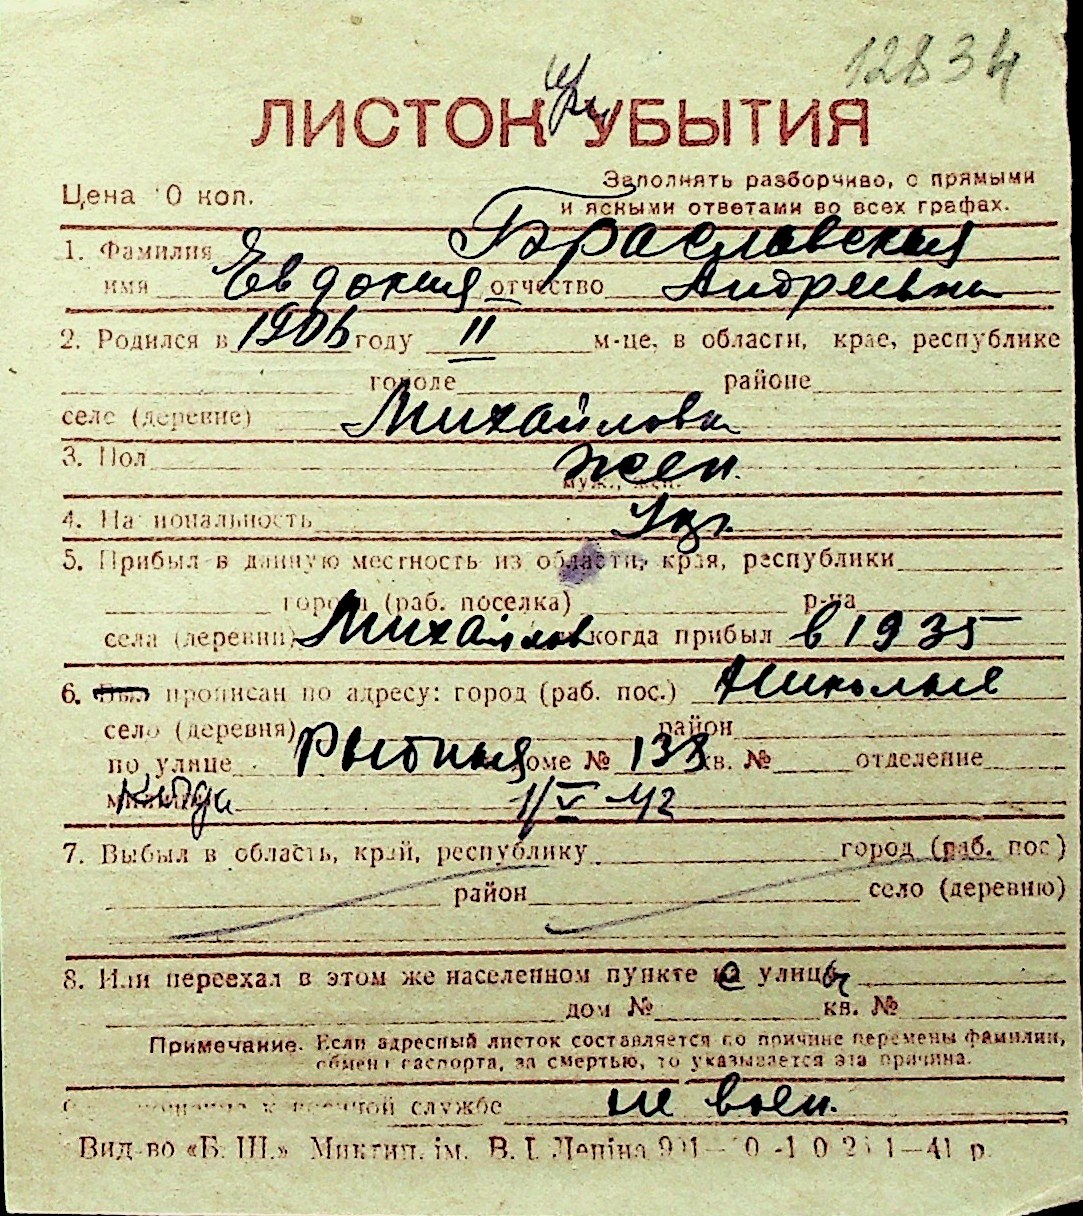 12834
при
ЛИСТОК УБЫТИЯ
Заполнять разборчиво, с прямыми
Цена 0 коп.
и ясными ответами во всех графах.
1. Фамилия Браславская
имя Евдокия отчество Андреевна
2. Родился в 1906 году II м-це, в области, крае, республике
городе районе
селе (деревне) Михайловка
3. Пол жен.
муж., жен.
4. Национальность Укр.
5. Прибыл в данную местность из области, края, республики
города (раб. поселка) р-на
села (деревни) Михайлов когда прибыл в 1935
6. Был прописан по адресу: город (раб. пос.) Николаев
село (деревня) район
по улице Рыбная доме № 138 кв. № отделение
когда 1/V-42
7. Выбыл в область, край, республику город (раб. пос.)
район село (деревню)
8. Или переехал в этом же населенном пункте с улицы
дом № кв. №
Примечание. Если адресный листок составляется по причине перемены фамилии,
обмена паспорта, за смертью, то указывается эта причина.
к военной службе не воен.
Вид-во «Б. Ш.» Миктип. ім. В. І. Леніна 41 р.